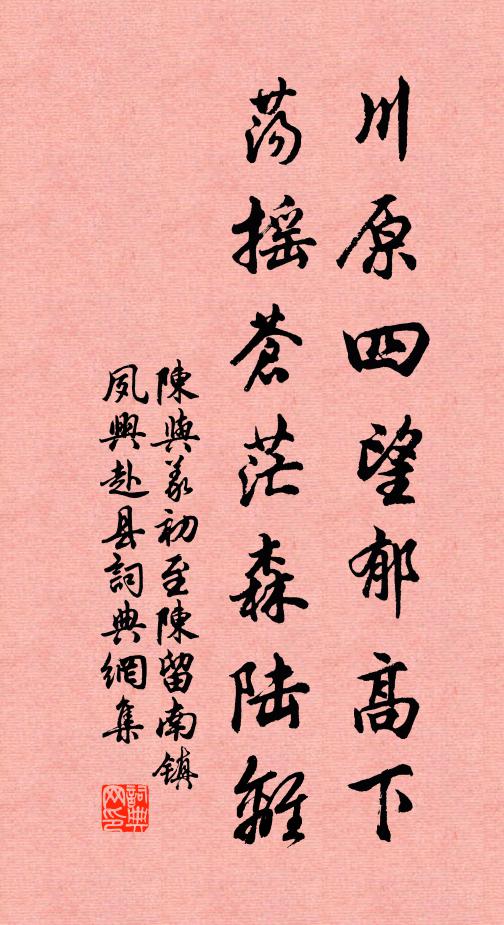 川原四望郁高下
荡摇苍茫森陆離
陳與義初至陳留南鎮
夙興赴县詞典網集
詞典网印